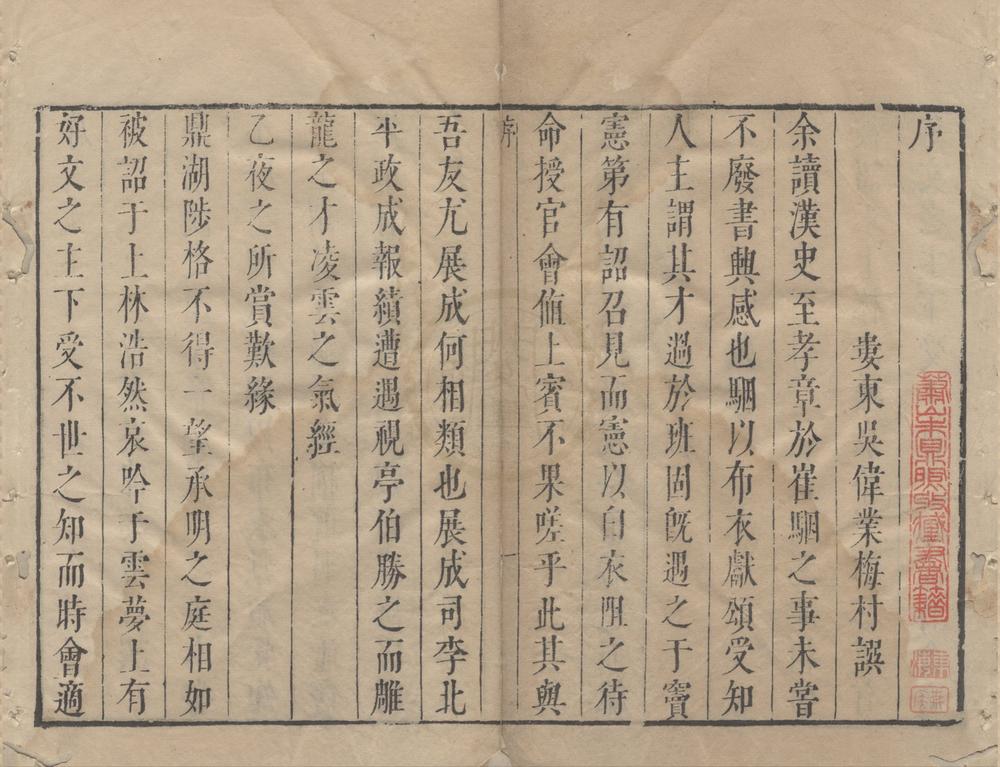 序
婁東吳偉業梅村譔
余讀漢史至孝章於崔駰之事未嘗
不廢書興感也駰以布衣獻頌受知
人主謂其才過於班固旣遇之于竇
憲第有詔召見而憲以白衣阻之待
命授官會偹上賓不果嗟乎此其與
序
一
吾友尤展成何相類也展成司李北
平政成報績遭遇視亭伯勝之而雕
龍之才凌雲之氣經
乙夜之所賞歎緣
鼎湖陟格不得一望承明之庭相如
被詔于上林浩然哀吟于雲夢上有
好文之主下受不世之知而時會適